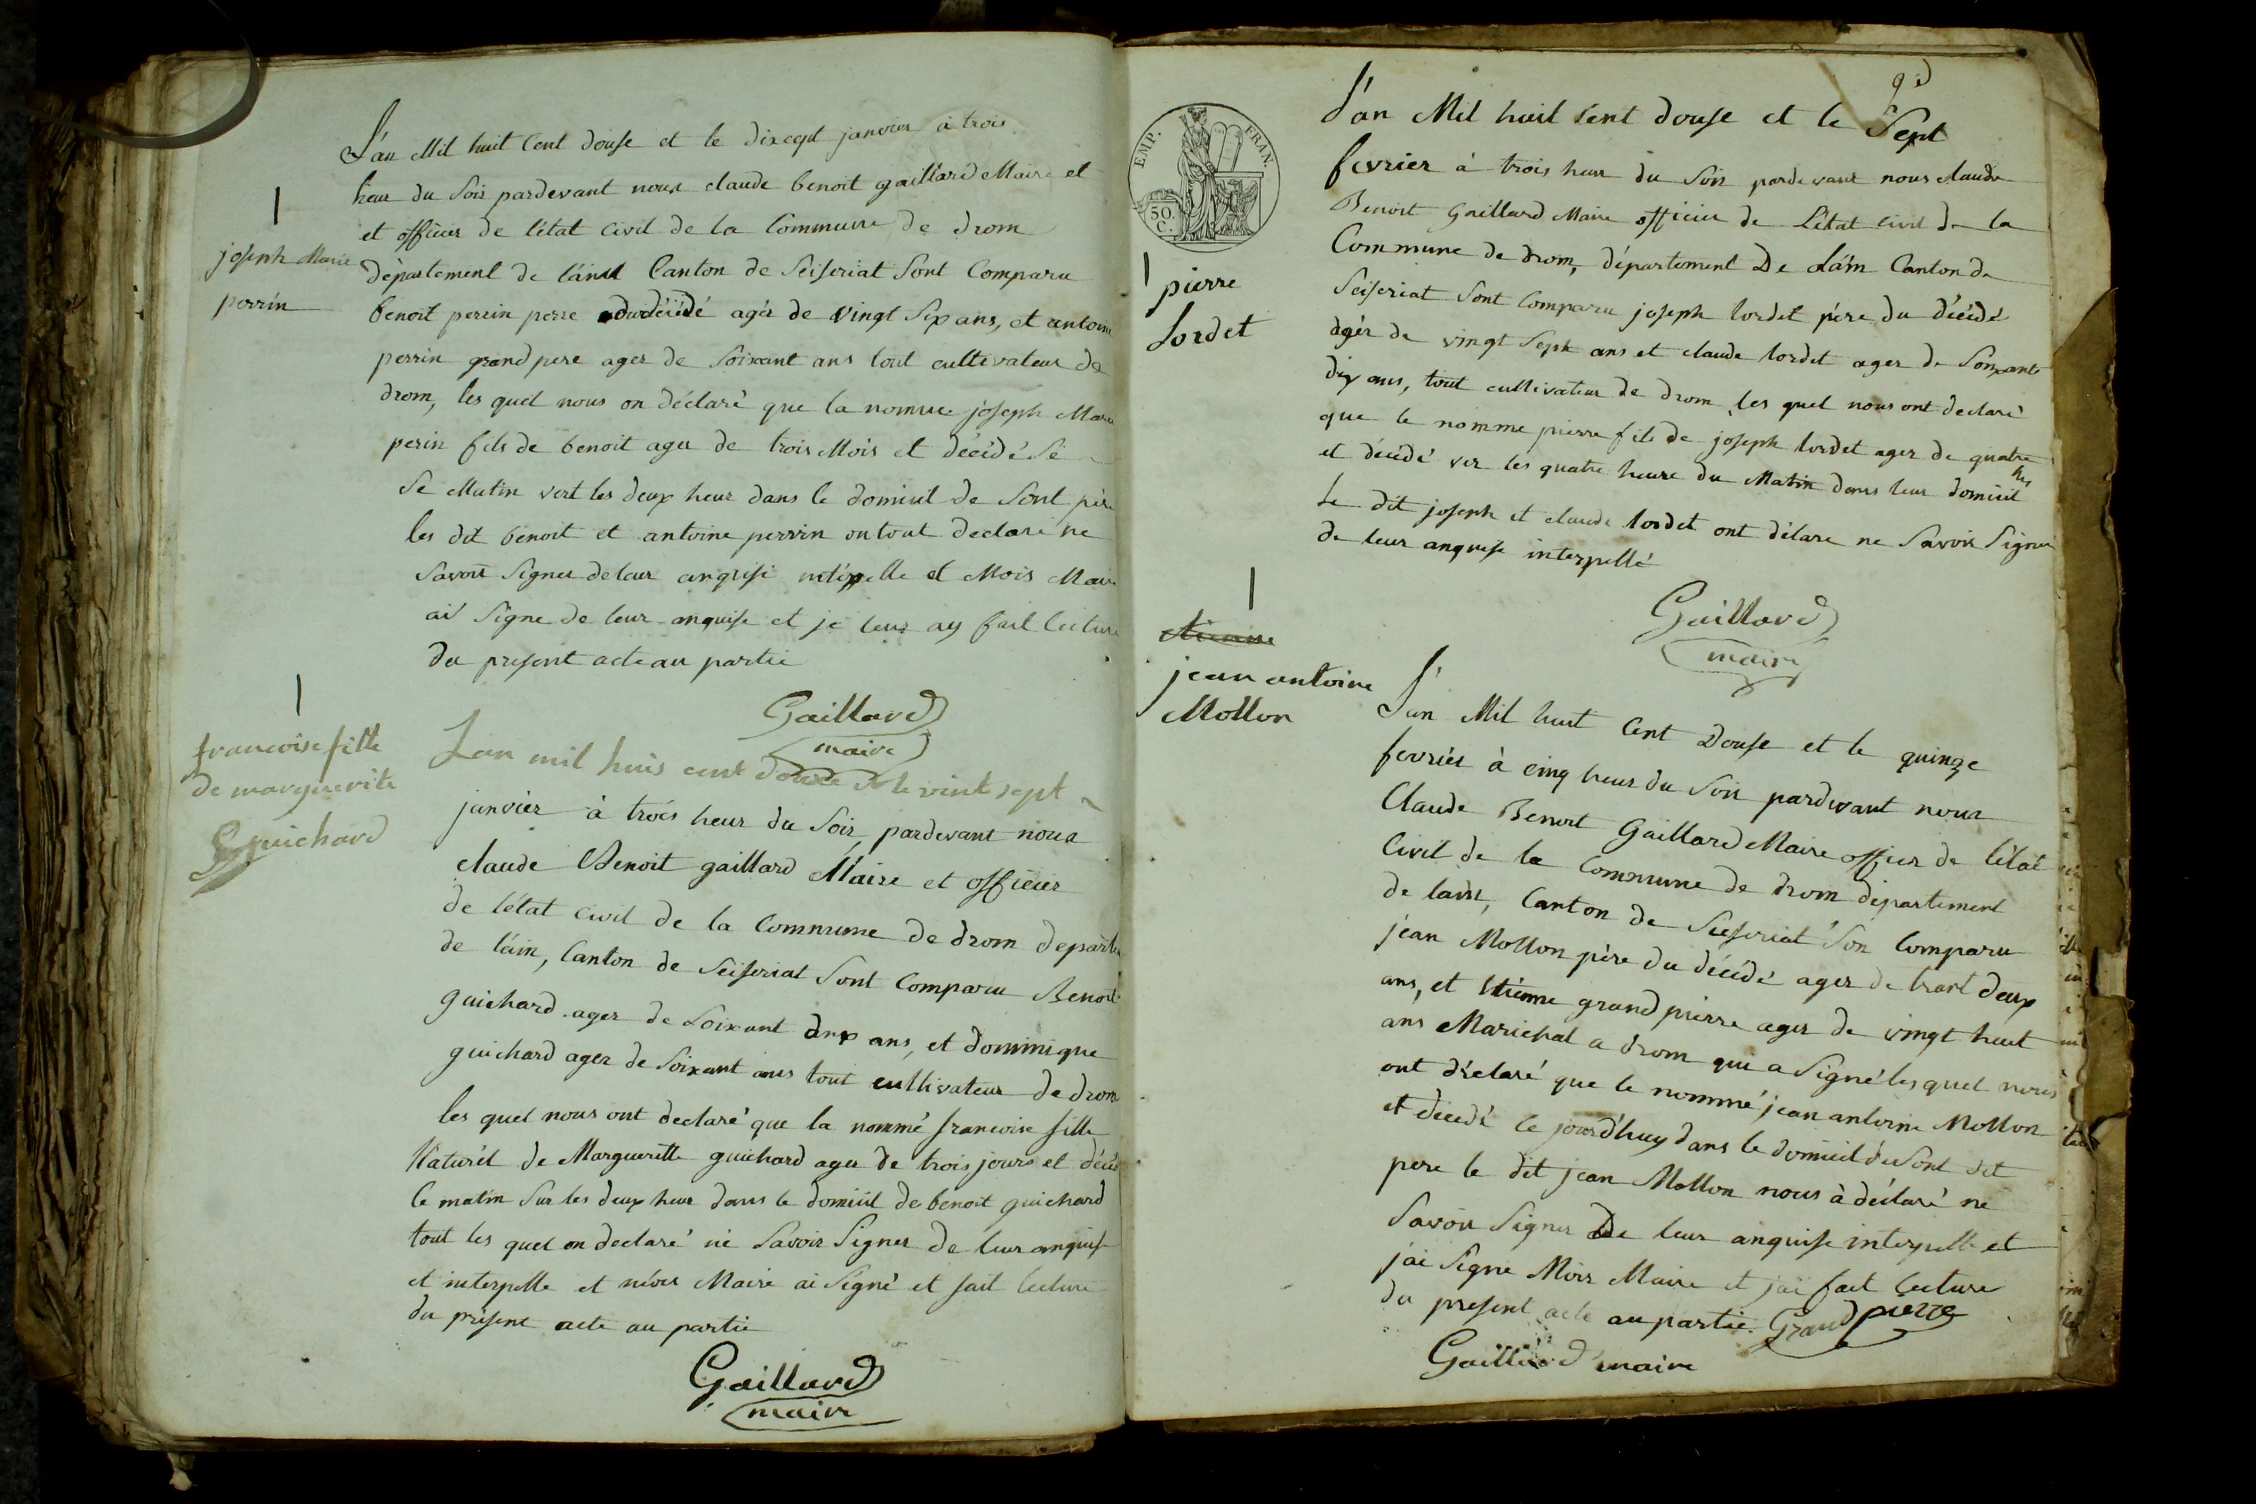 joseph Marie
perrin
L'an Mil huit Cent douse et le dixcept janvier à trois
heur du Soir pardevant nous claude benoit gaillard Maire et
et officier de l'état civil de la Commune de drom
département de l'ain Canton de Seiseriat Sont Comparu
benoit perrin perre du décédé agér de vingt Six ans, et antoine
perrin grand pere ager de Soixant ans tout cultivateur de
drom, les quel nous on déclaré que la nomme joseph Marie
perin fils de benoit ager de trois Mois et décédé Se
Se Matin vert les deux heur dans le domicil de Sont père
les dit benoit et antoine perrin on tout declaré ne
Savoir Signer de leur anquise et Mois Maire
ai Signe de leur anquise et je leur ay fait lecture
du present acte au partie
Gaillard
maire
francoise fille
de marguerite
Guichard
Lan mil huis cent douze et le vint sept
janvier à trois heur du Soir, pardevant nous
claude Benoit gaillard Maire et officier
de l'état civil de la Commune de drom departe
de l'ain, Canton de Seiseriat Sont Comparu Benoit
guichard ager de Soixant ans, et dominique
guichard ager de Soixant ans tout cultivateur de drom
les quel nous ont declaré que la nommé francoise fille
Naturél de Margueritte guichard ager de trois jours et décé
le matin Sur les deux heur dans le domicil de benoit guichard
tout les quel on declaré ne Savoir Signer de leur anquise
et interpelle et Maire ai Signé et fait lecture
du présent acte au partie
Gaillard
maire
EMP. FRAN.
50.
C.
pierre
lordet
L'an Mil huit Cent douse et le Sept
fevrier à trois heur du Soir pardevant nous claude
Benoit Gaillard Maire officier de L'état civil de la
Commune de drom, département De L'ain Canton de
Seiseriat Sont Comparu joseph lordet père du décédé
agér de vingt Sept ans et claude lordet ager de Soixante
dix ans, tout cultivateur de drom, les quel nous ont declaré
que le nomme pierre fils de joseph lordet ager de quatre
et décédé ver les quatre heure du Matin dans leur domicil
Le dit joseph et claude lordet ont délare ne Savoir Signer
de leur anquise interpellé
Gaillard
maire
jean antoine
Mollon
L'an Mil huit Cent Douse et le quinze
fevriér à cinq heur du Soir pardevant nous
Claude Benoit Gaillard Maire officer de l'état
Civil de la Commune de drom département
de lain, Canton de Sieseriat Son Comparu
jean Mollon père du décédé ager de trant deux
ans, et Etienne grand pierre ager de vingt huit
ans Marichal a drom qui a Signé les quel nous
ont déclaré que le nommé jean antoine Mollon
et décédé ce jourd'huy dans le domicil du Sont dit
pere le dit jean Mollon nous à déclaré ne
Savoir Signer De leur anquise interpelle et
j'ai Signe Mois Maire et j'ai fait lecture
du present acte au partie. Grandpierre
Gaillard maire